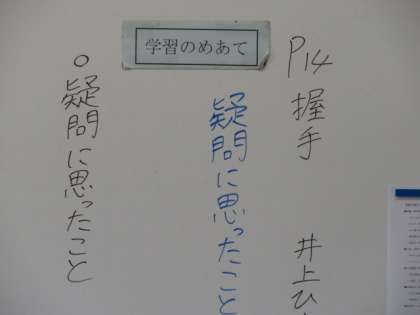 P14 握手 井上ひ
学習のめあて
疑問に思ったこと
○疑問に思ったこと